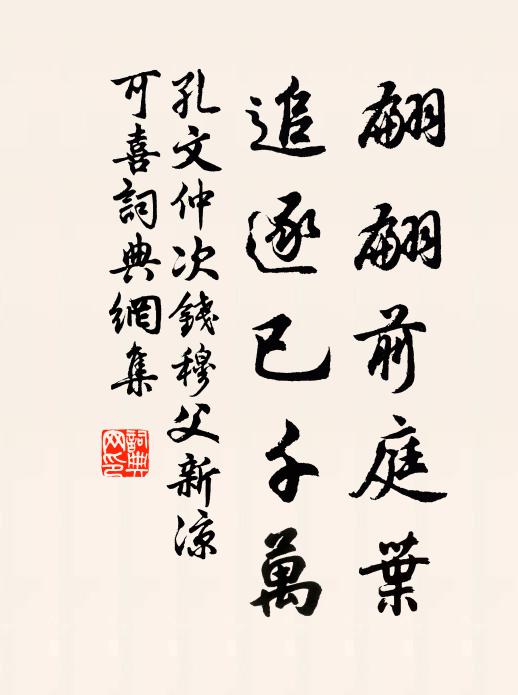 翩翩前庭葉
追逐已千萬
孔文仲次錢穆父新涼
可喜詞典網集
詞典網印